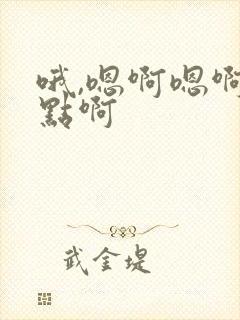 哦,嗯啊嗯啊
點啊
武金堤